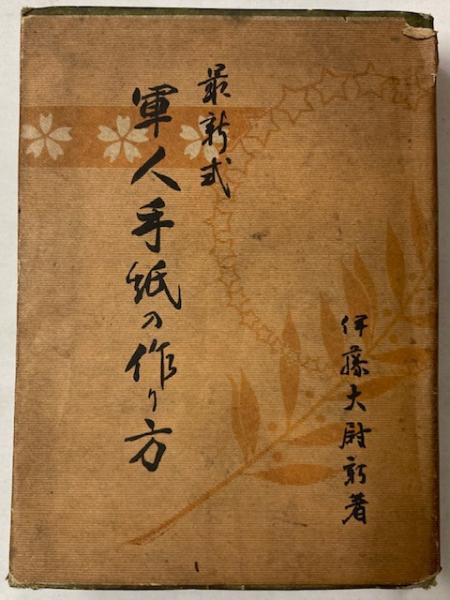 最新式
軍人手紙の作り方
伊藤大尉新著